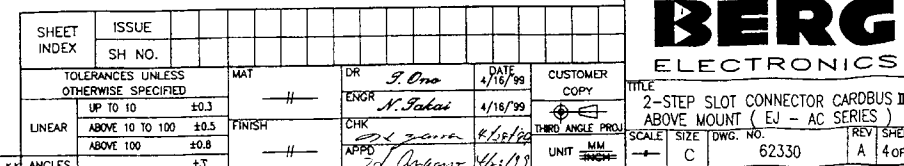 SHEET INDEX ISSUE
SH NO.
TOLERANCES UNLESS
OTHERWISE SPECIFIED
LINEAR
UP TO 10 ±0.3
ABOVE 10 TO 100 ±0.5
ABOVE 100 ±0.8
ANGLES
MAT
FINISH
DR T. Ono DATE 4/16/'99
ENGR N. Takai 4/16/'99
CHK
APPD
CUSTOMER
COPY
THIRD ANGLE PROJ
UNIT MM INCH
BERG
ELECTRONICS
TITLE
2-STEP SLOT CONNECTOR CARDBUS II
ABOVE MOUNT ( EJ - AC SERIES )
SCALE SIZE DWG. NO. REV
C 62330 A 4 OF